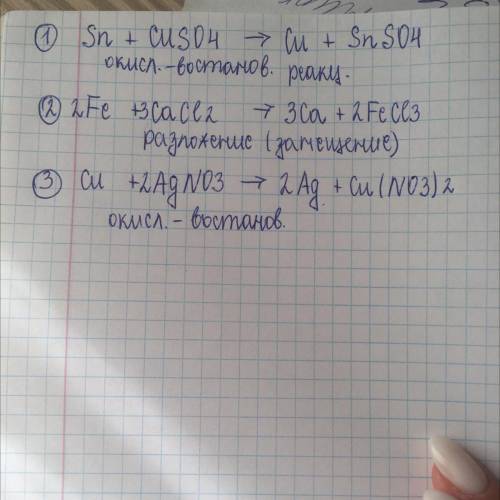 ① Sn + CuSO4 → Cu + SnSO4
окисл.-востанов. реакц.
② 2Fe +3CaCl2 → 3Ca + 2FeCl3
разложение (замещение)
③ Cu +2AgNO3 → 2Ag + Cu(NO3)2
окисл.- востанов.